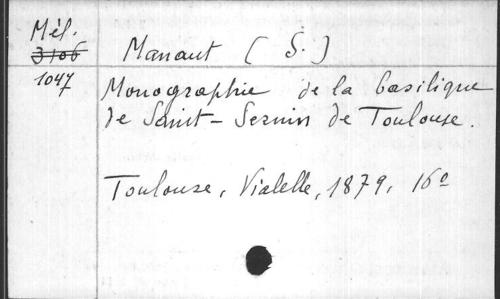 Mél.
3106
1047
Manaut (S.)
Monographie de la basilique
de Saint-Sernin de Toulouse.
Toulouse, Vialelle, 1879, 16º